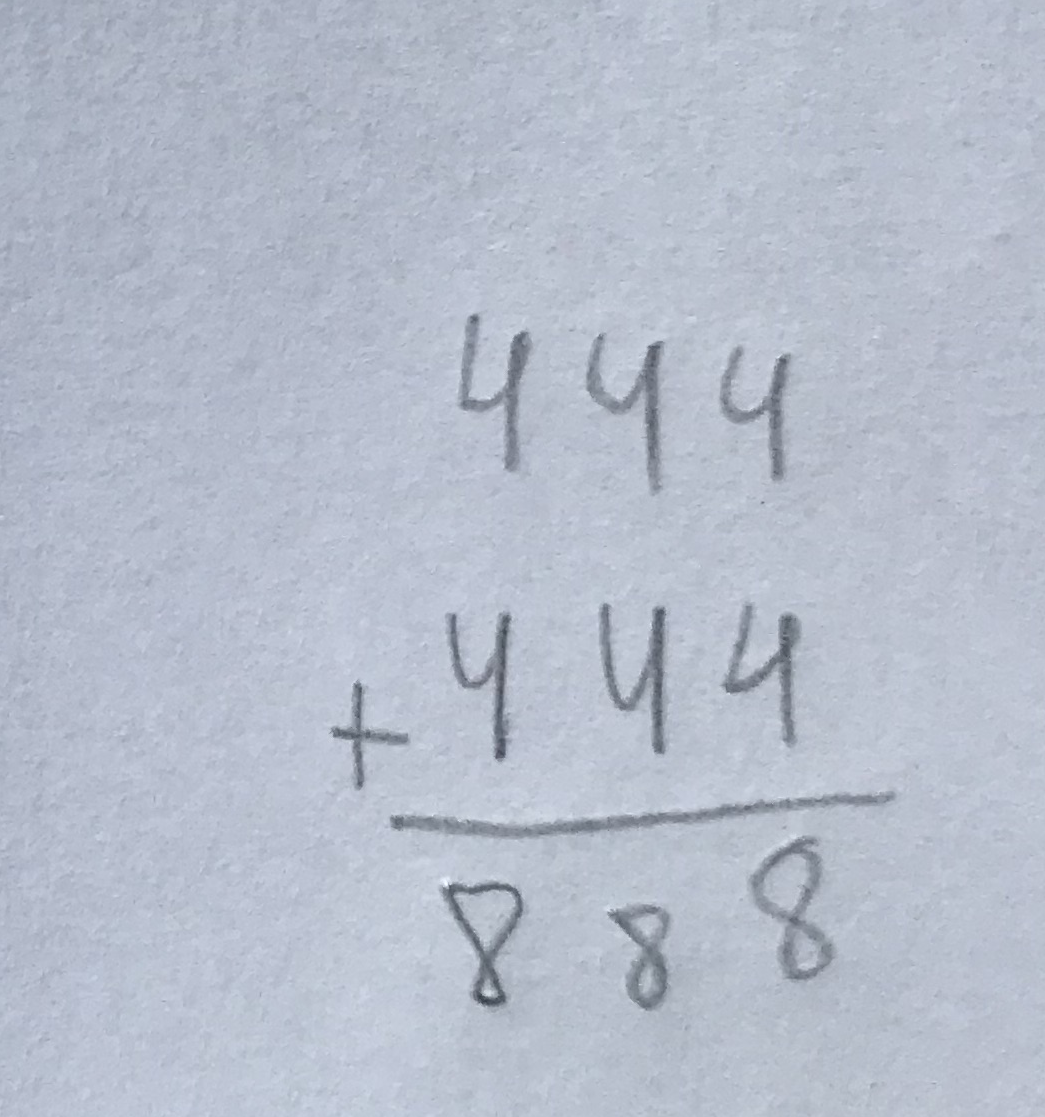 444
+ 444
888